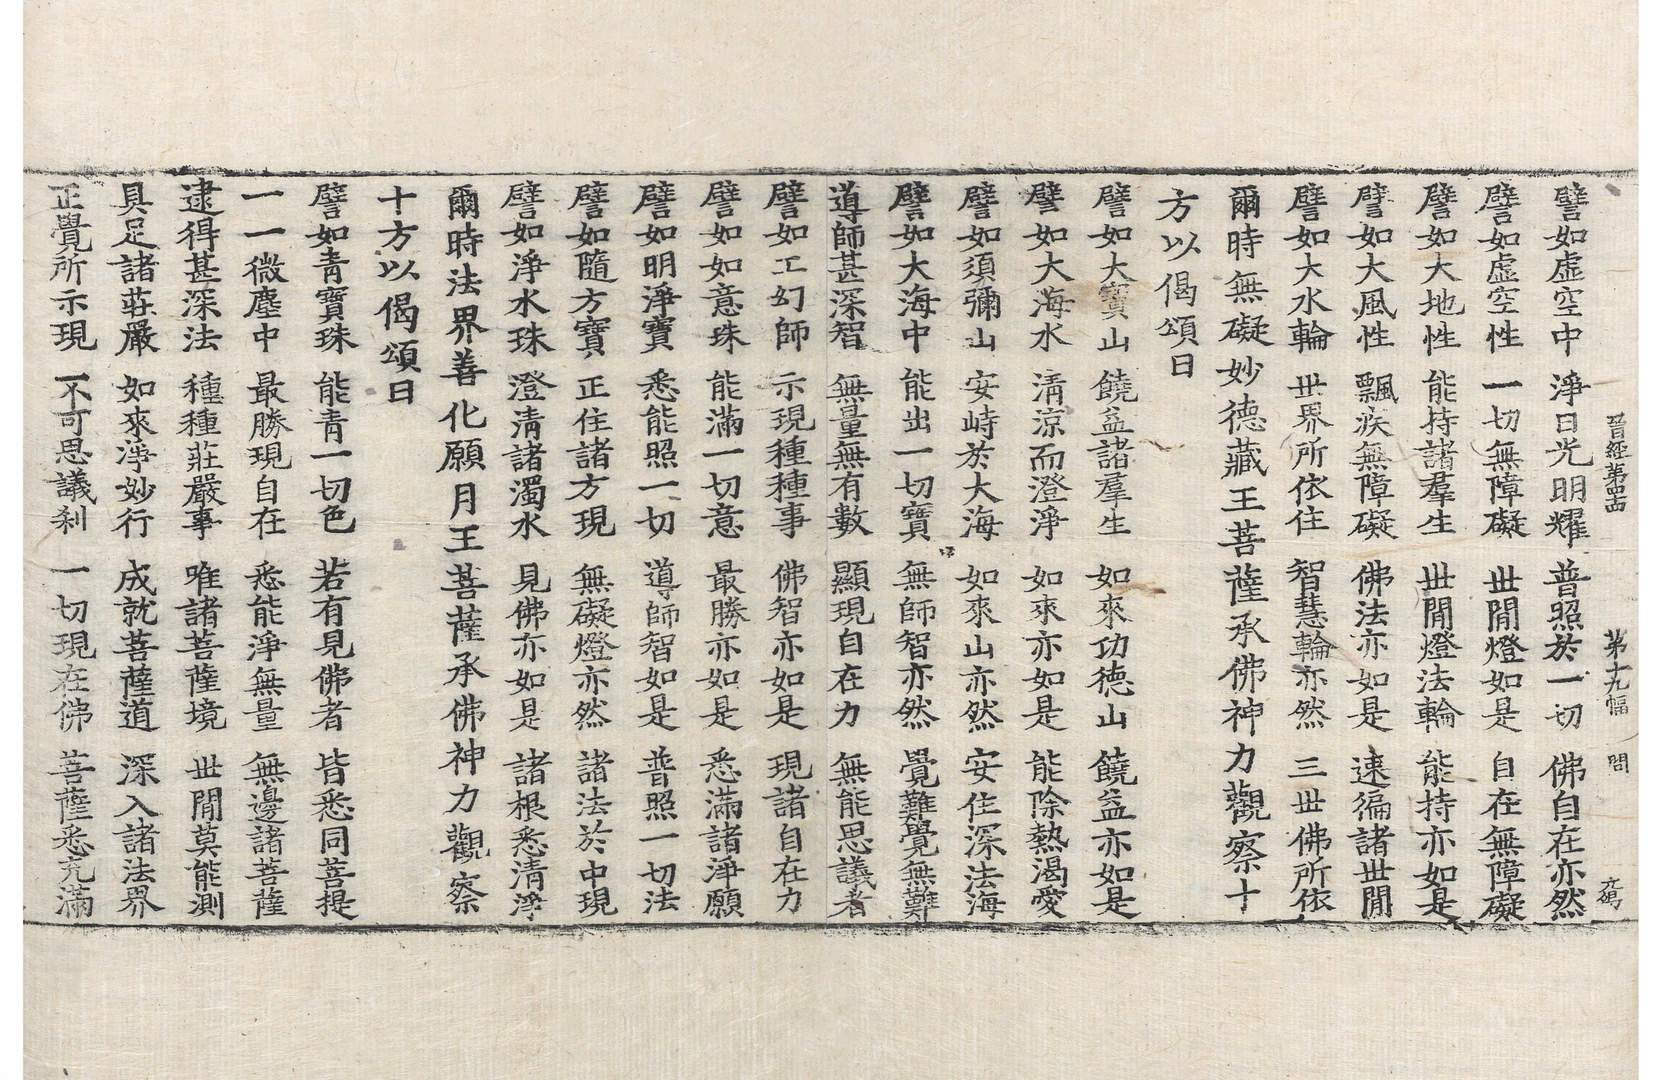 晉經第四十四 第十九幅 問 大鵠
譬如虛空中 淨日光明耀 普照於一切 佛自在亦然
譬如虛空性 一切無障礙 世間燈如是 自在無障礙
譬如大地性 能持諸羣生 世間燈法輪 能持亦如是
譬如大風性 飄疾無障礙 佛法亦如是 速徧諸世間
譬如大水輪 世界所依住 智慧輪亦然 三世佛所依
爾時無礙妙德藏王菩薩承佛神力觀察十
方以偈頌曰
譬如大寶山 饒益諸羣生 如來功德山 饒益亦如是
譬如大海水 清涼而澄淨 如來亦如是 能除熱渴愛
譬如須彌山 安峙於大海 如來山亦然 安住深法海
譬如大海中 能出一切寶 無師智亦然 覺難覺無難
導師甚深智 無量無有數 顯現自在力 無能思議者
譬如工幻師 示現種種事 佛智亦如是 現諸自在力
譬如如意珠 能滿一切意 最勝亦如是 悉滿諸淨願
譬如明淨寶 悉能照一切 導師智如是 普照一切法
譬如隨方寶 正住諸方現 無礙燈亦然 諸法於中現
譬如淨水珠 澄清諸濁水 見佛亦如是 諸根悉清淨
爾時法界善化願月王菩薩承佛神力觀察
十方以偈頌曰
譬如青寶珠 能青一切色 若有見佛者 皆悉同菩提
一一微塵中 最勝現自在 悉能淨無量 無邊諸菩薩
逮得甚深法 種種莊嚴事 唯諸菩薩境 世間莫能測
具足諸莊嚴 如來淨妙行 成就菩薩道 深入諸法界
正覺所示現 不可思議剎 一切現在佛 菩薩悉充滿